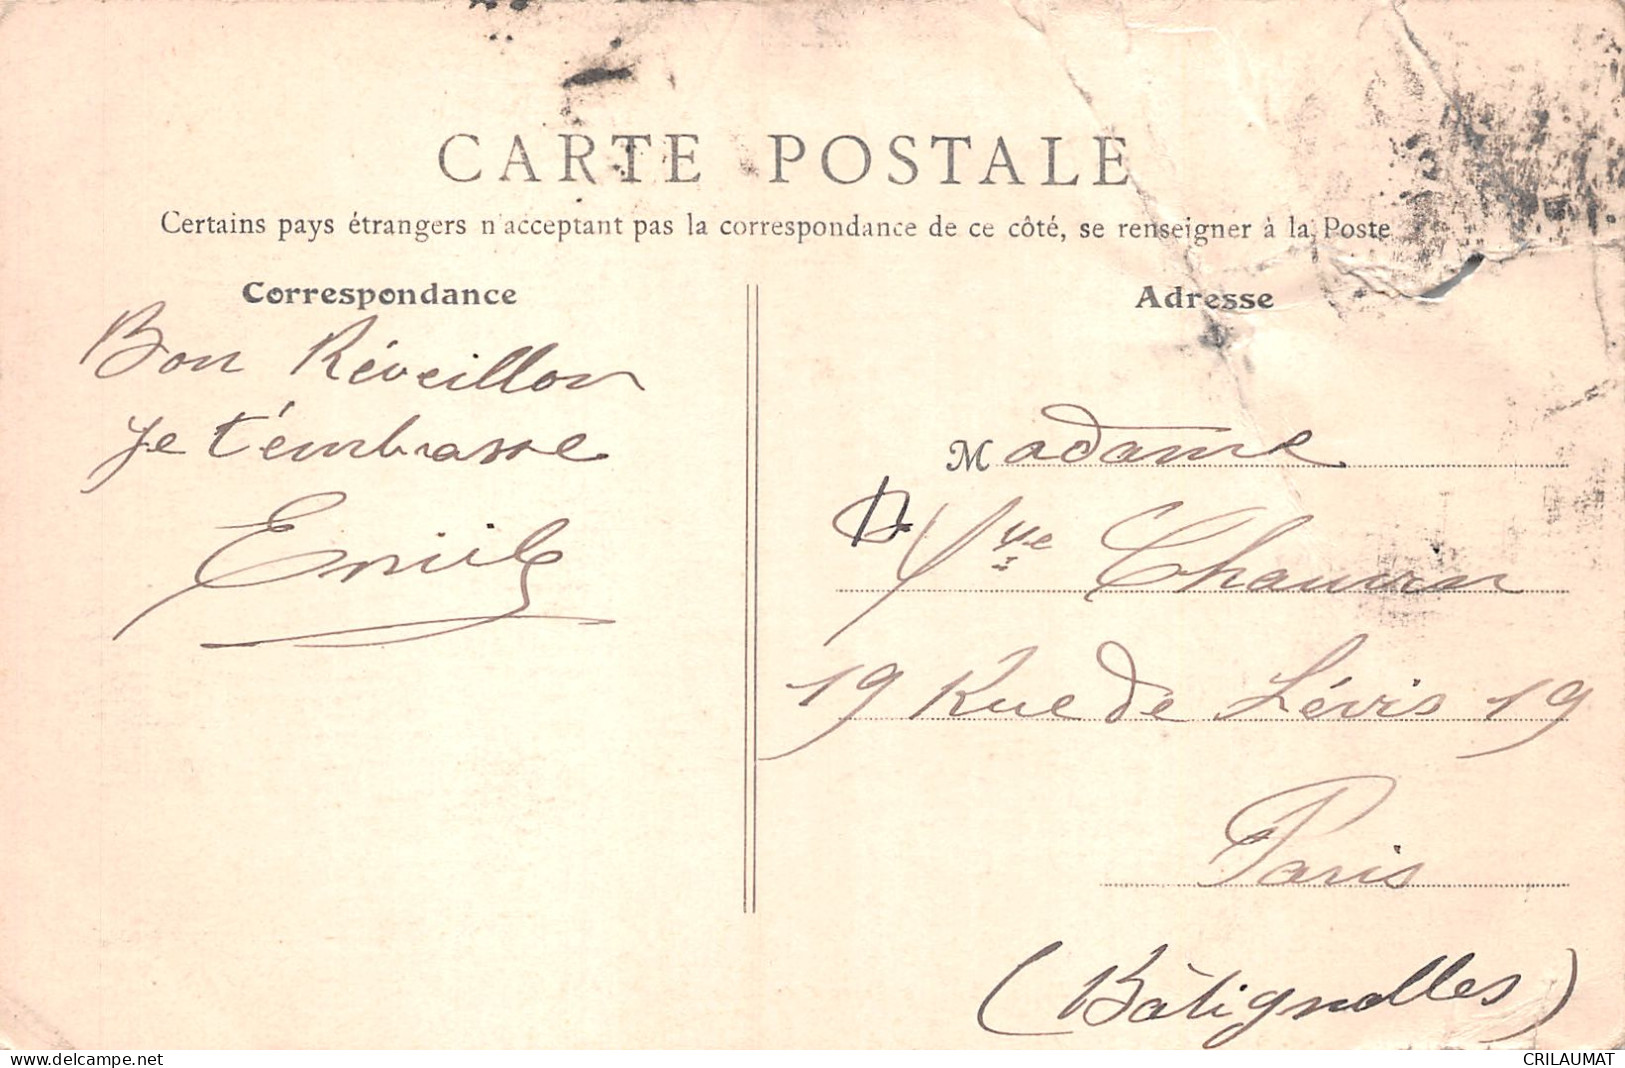 CARTE POSTALE
Certains pays étrangers n'acceptant pas la correspondance de ce côté, se renseigner à la Poste
Correspondance
Bon Réveillon
Je t'embrasse
Emile
Adresse
Madame
Vve
19 Rue de Lévis 19
Paris
(Bâtignolles)
delcampe.net
CRILAUMAT